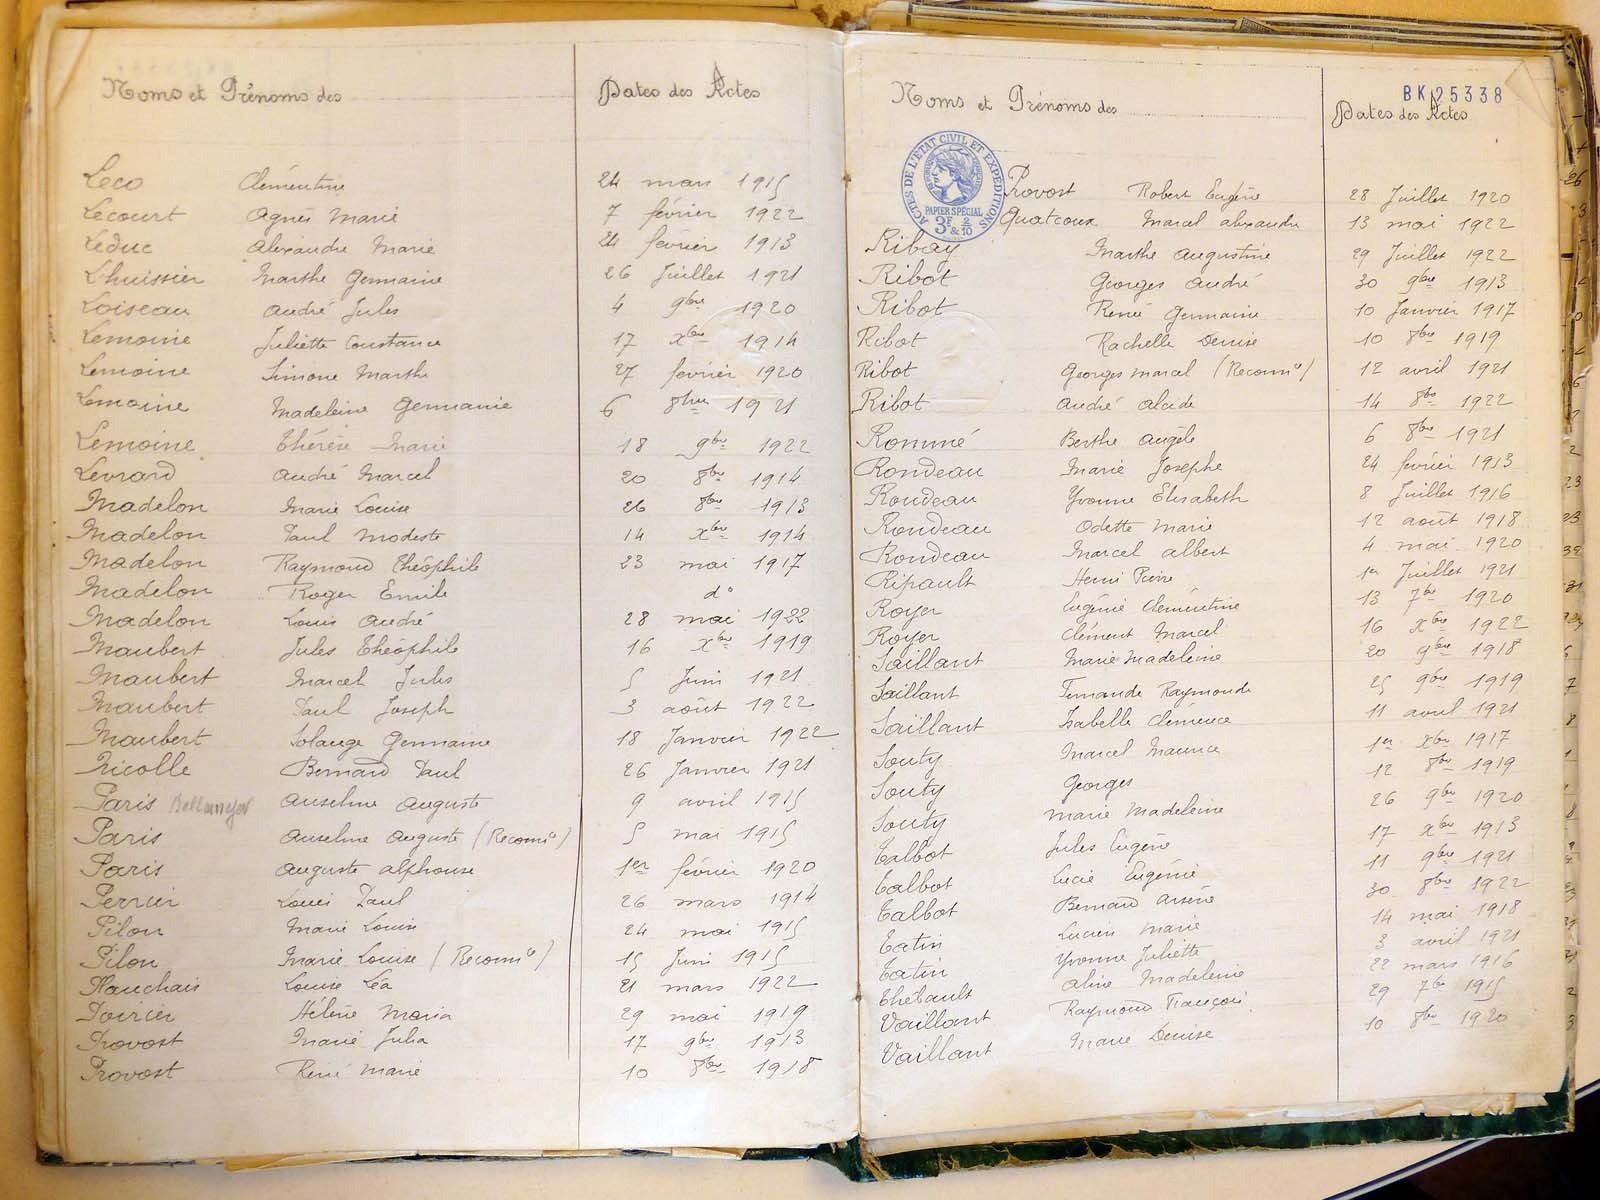 Noms et Prénoms des Dates des Actes
Leco Clémentine 24 mars 1915
Lecourt Agnès Marie 7 février 1922
Leduc Alexandre Marie 24 février 1913
Lhuissier Marthe Germaine 26 Juillet 1921
Loiseau André Jules 4 9bre 1920
Lemoine Juliette Constance 17 xbre 1914
Lemoine Simone Marthe 27 février 1920
Lemoine Madeleine Germaine 6 8bre 1921
Lemoine Thérèse Marie 18 9bre 1922
Levrard André Marcel 20 8bre 1914
Madelon Marie Louise 26 8bre 1913
Madelon Paul Modeste 14 xbre 1914
Madelon Raymond Théophile 23 mai 1917
Madelon Roger Emile do
Madelon Louis André 28 mai 1922
Maubert Jules Théophile 16 xbre 1919
Maubert Marcel Jules 5 Juin 1921
Maubert Paul Joseph 3 août 1922
Maubert Solange Germaine 18 Janvier 1922
Nicolle Bernard Paul 26 Janvier 1921
Paris Anselme Auguste 9 avril 1915
Paris Anselme Auguste (Reconnce) 5 mai 1915
Paris Auguste Alphonse 1er février 1920
Perrier Louis Paul 26 mars 1914
Pilon Marie Louise 24 mai 1915
Pilon Marie Louise (Reconnce) 15 Juin 1915
Plauchais Louise Léa 21 mars 1922
Poirier Hélène Maria 29 mai 1919
Provost Marie Julia 17 9bre 1913
Provost René Marie 10 8bre 1918
BK 25338
Noms et Prénoms des Dates des Actes
ACTES DE L'ETAT CIVIL ET EXPEDITIONS
PAPIER SPÉCIAL
3F & 2/10
Provost Robert Eugène 28 Juillet 1920
Quatcoux Marcel Alexandre 13 mai 1922
Ribay Marthe Augustine 29 Juillet 1922
Ribot Georges André 30 9bre 1913
Ribot Renée Germaine 10 Janvier 1917
Ribot Rachelle Denise 10 8bre 1919
Ribot Georges Marcel (Reconnce) 12 avril 1921
Ribot André Alcide 14 8bre 1922
Rommé Berthe Angèle 6 8bre 1921
Rondeau Marie Josephe 24 février 1913
Rondeau Yvonne Elisabeth 8 Juillet 1916
Rondeau Odette Marie 12 août 1918
Rondeau Marcel Albert 4 mai 1920
Ripault Henri Pierre 1er Juillet 1921
Royer Eugénie Clémentine 13 7bre 1920
Royer Clément Marcel 16 xbre 1922
Saillant Marie Madeleine 20 9bre 1918
Saillant Fernande Raymonde 25 9bre 1919
Saillant Isabelle Clémence 11 avril 1921
Souty Marcel Maurice 1er xbre 1917
Souty Georges 12 8bre 1919
Souty Marie Madeleine 26 9bre 1920
Talbot Jules Eugène 17 xbre 1913
Talbot Lucie Eugénie 11 9bre 1921
Talbot Bernard Arsène 30 8bre 1922
Tatin Lucien Marie 14 mai 1918
Tatin Yvonne Juliette 3 avril 1921
Thebault Aline Madeleine 22 mars 1916
Vaillant Raymond François 29 7bre 1915
Vaillant Marie Denise 10 8bre 1920